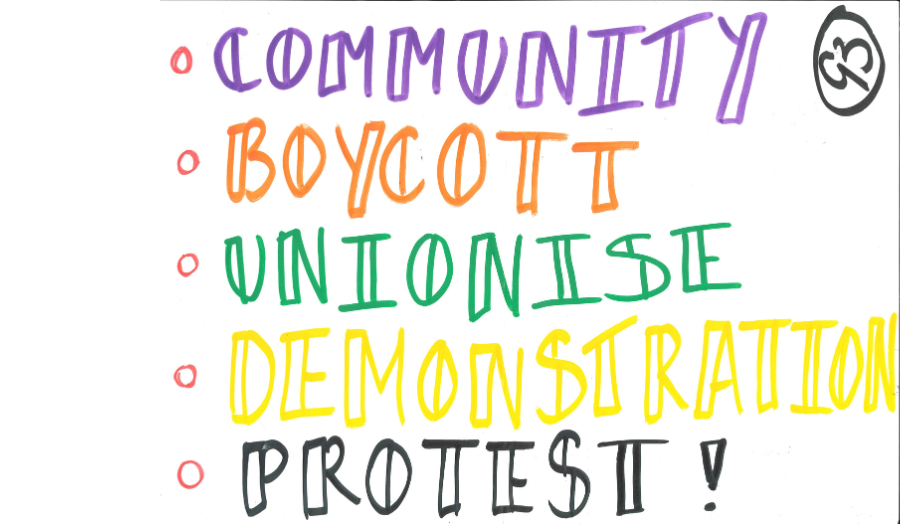 COMMUNITY
93
BOYCOTT
UNIONISE
DEMONSTRATION
PROTEST!